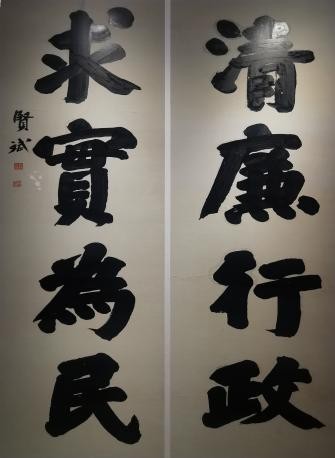 清廉行政
求實為民
賢斌